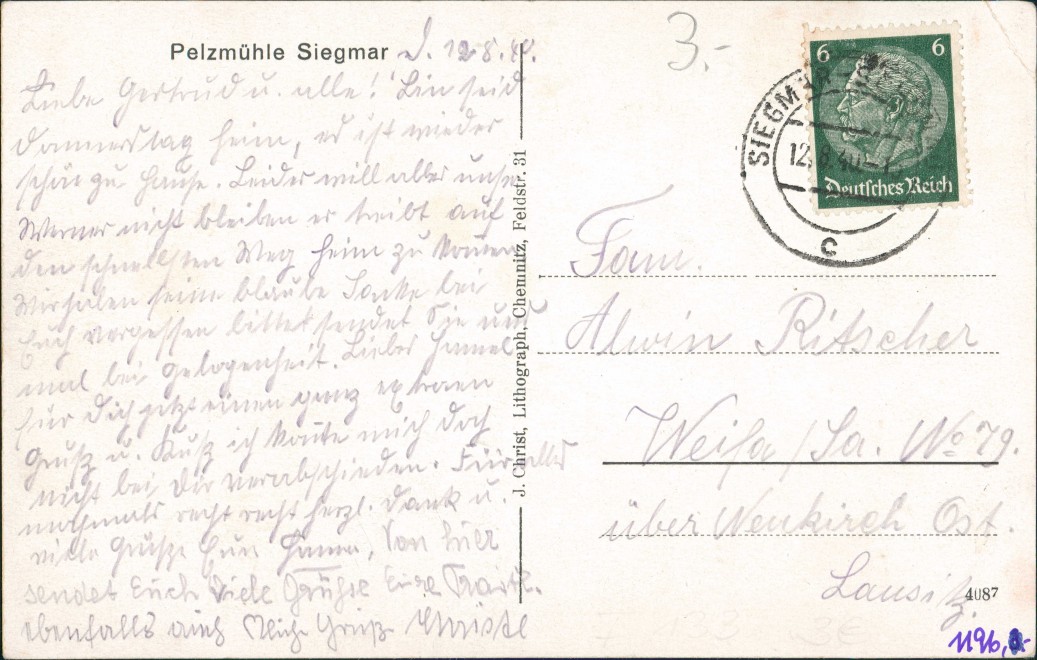 Pelzmühle Siegmar d. 12.8.40.
Liebe Gertrud u. alle! Bin seid
Donnerstag heim, es ist wieder
schön zu Hause. Leider will aber unser
Werner nicht bleiben er treibt auf
den schnellsten Weg heim zu kommen
Wir haben seine blaube Jacke bei
Euch vergessen bittet sendet Sie uns
mal bei gelegenheit. Lieber
für Dich jetzt einen ganz extraen
Gruß u. Kuß ich konnte mich doch
nicht bei Dir verabschieden. Für alles
nochmals recht recht herzl. Dank u.
viele Grüße Eure Von hier
sendet Euch viele Grüße Eure
ebenfalls auch Gruß Christl
J. Christ, Lithograph, Chemnitz, Feldstr. 31
3.-
6 6
Deutsches Reich
SIEGMAR
12.8.40
c
Fam.
Alwin Ritscher
Weifa/Sa. No 79.
über Neukirch Ost.
Lausitz.
4087
1196,